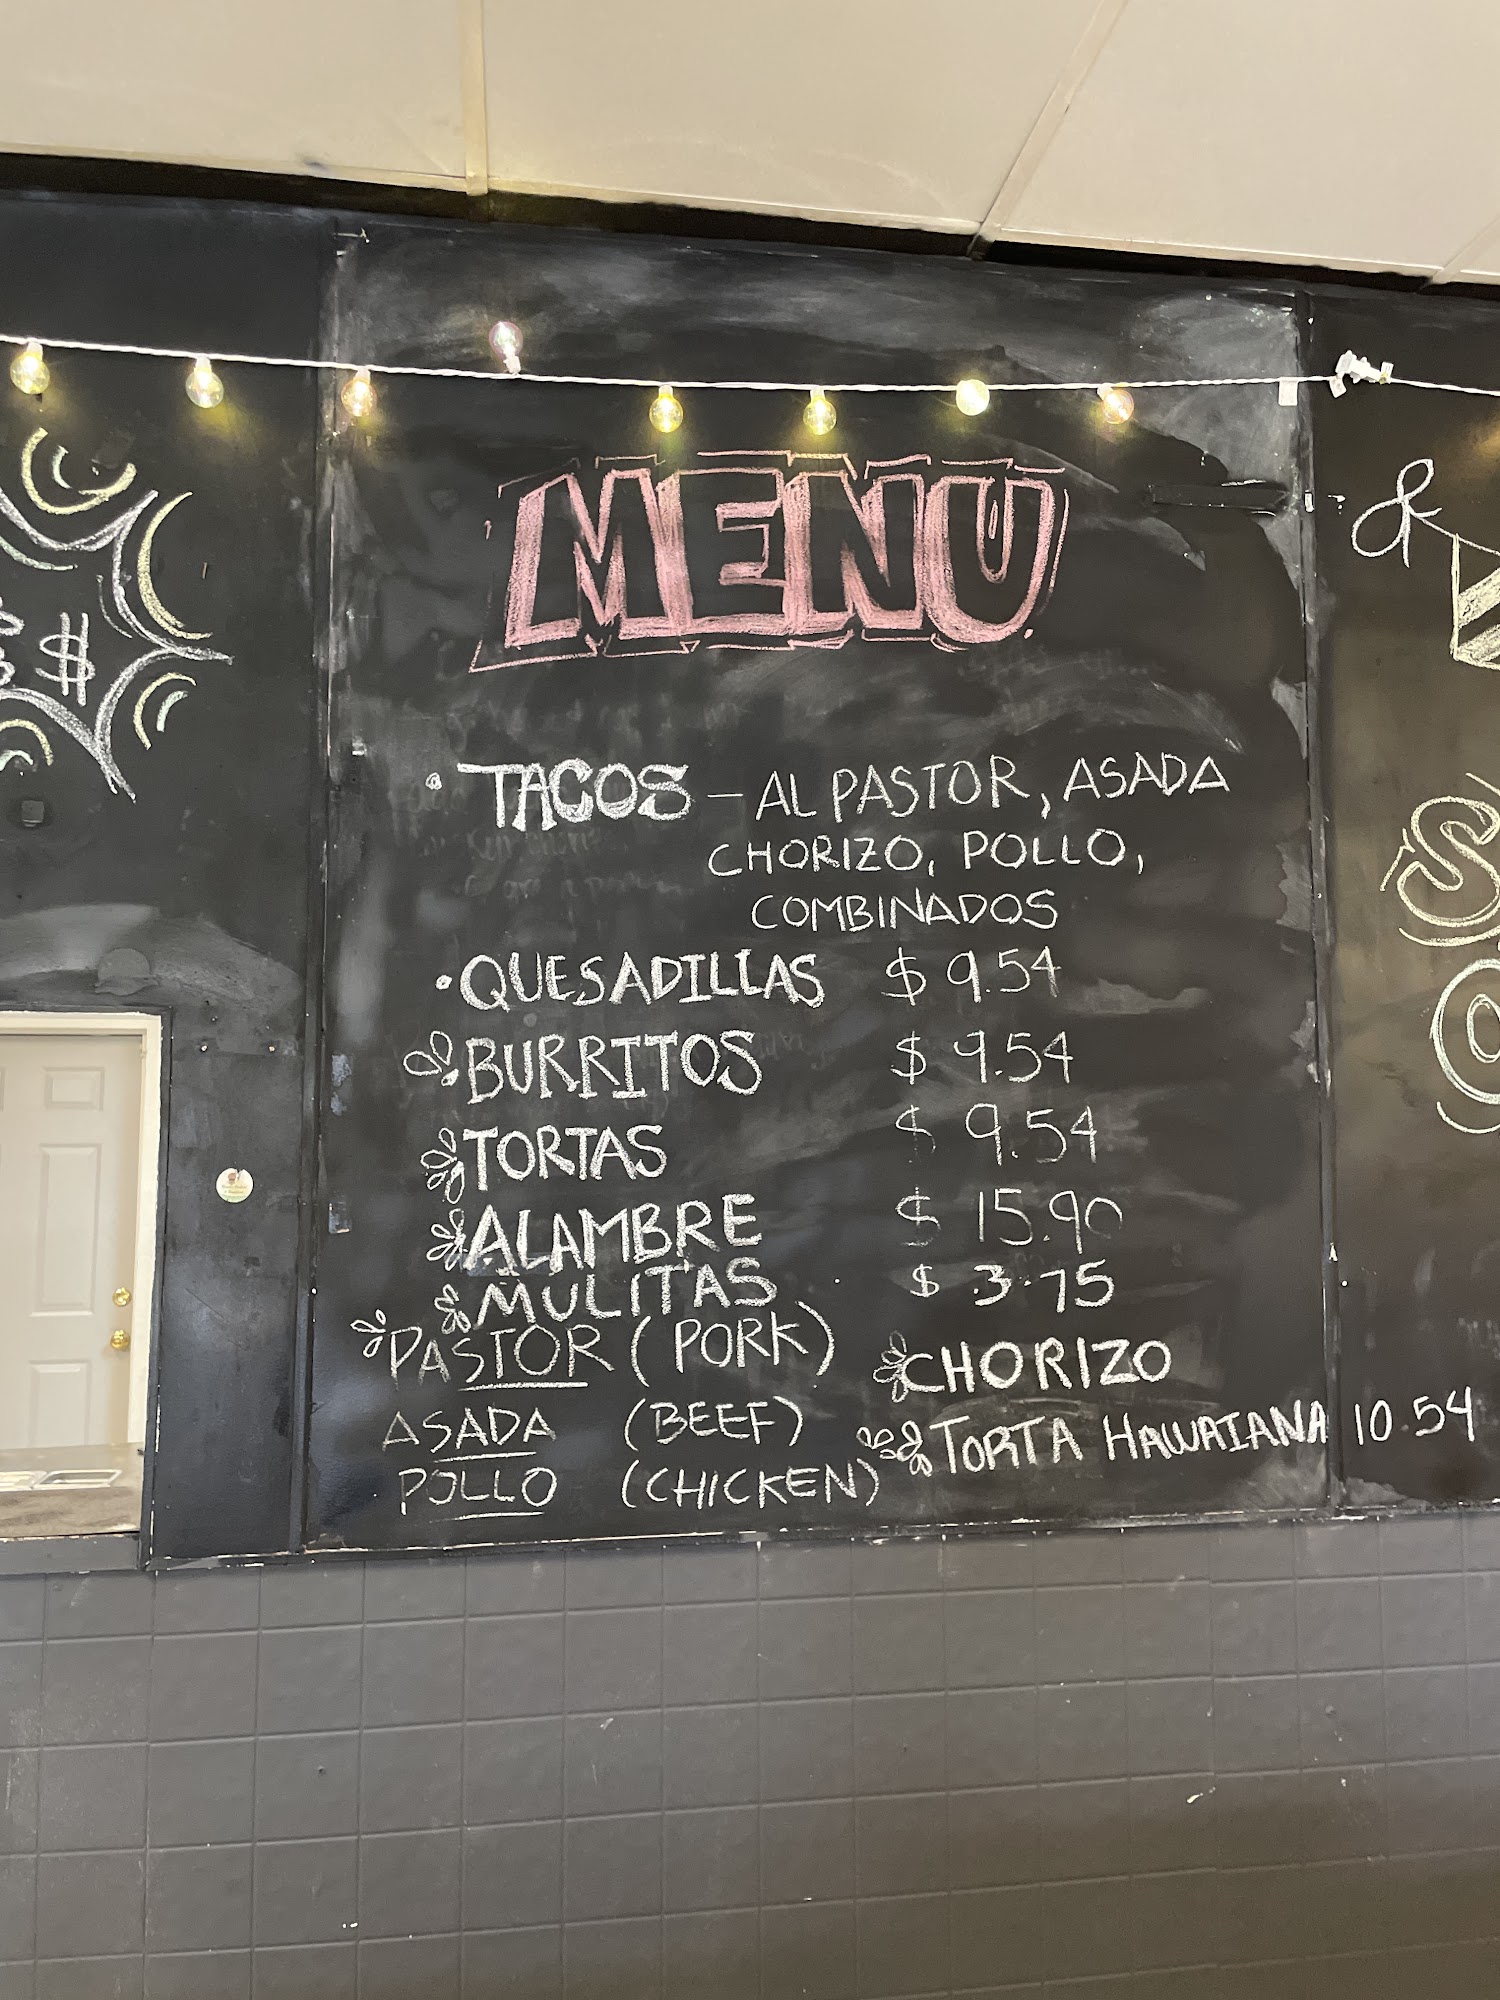 MENU
• TACOS – AL PASTOR, ASADA
CHORIZO, POLLO,
COMBINADOS
• QUESADILLAS $ 9.54
BURRITOS $ 9.54
TORTAS $ 9.54
ALAMBRE $ 15.90
MULITAS $ 3.75
PASTOR (PORK)
CHORIZO
ASADA (BEEF)
TORTA HAWAIANA 10.54
POLLO (CHICKEN)
$
&